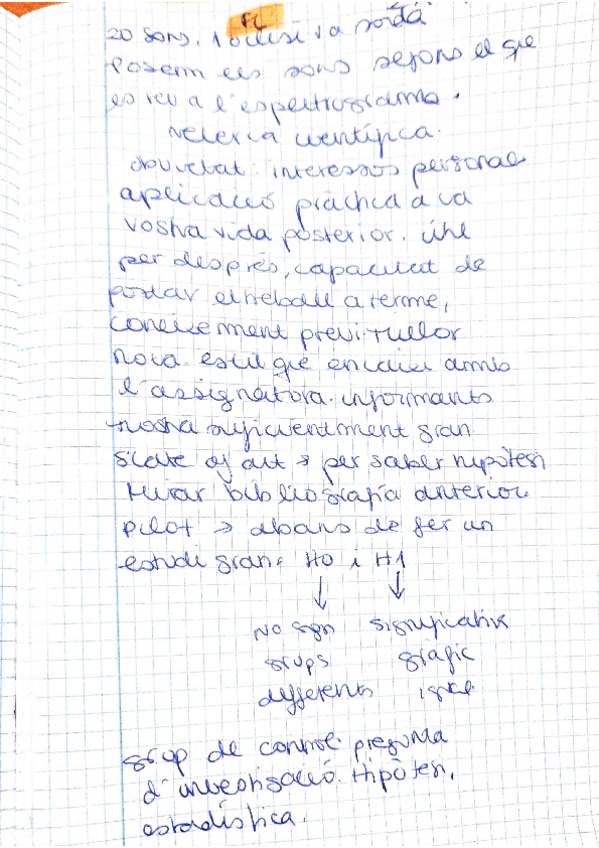 FL
20 sons. 1 oclusiva sorda
Posem els sons segons el que
es veu a l'espectrograma.
recerca científica.
novetat: interessos personals
aplicació pràctica a la
vostra vida posterior. útil
per després, capacitat de
portar el treball a terme,
coneixement previ full or
nova escull què encaixi amb
l'assignatura. informants
mostra suficientment gran
State of art → per saber hipòtesi
Mirar bibliografia anterior.
pilot → abans de fer un
estudi gran. H0 i H1
↓ ↓
No sign significatiu
grups gràfic
diferents igual
grup de control. pregunta
d'investigació. Hipòtesi,
estadística.